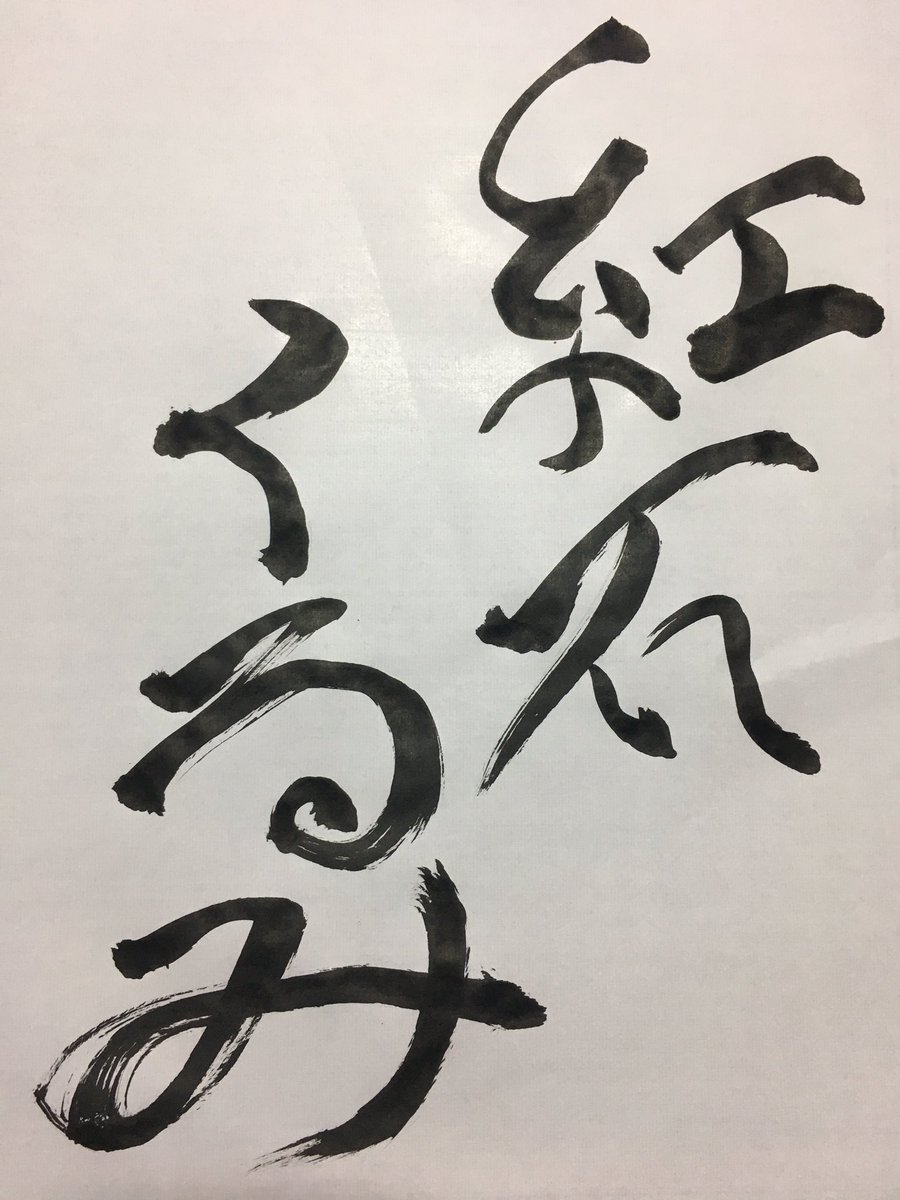 紅石
くるみ